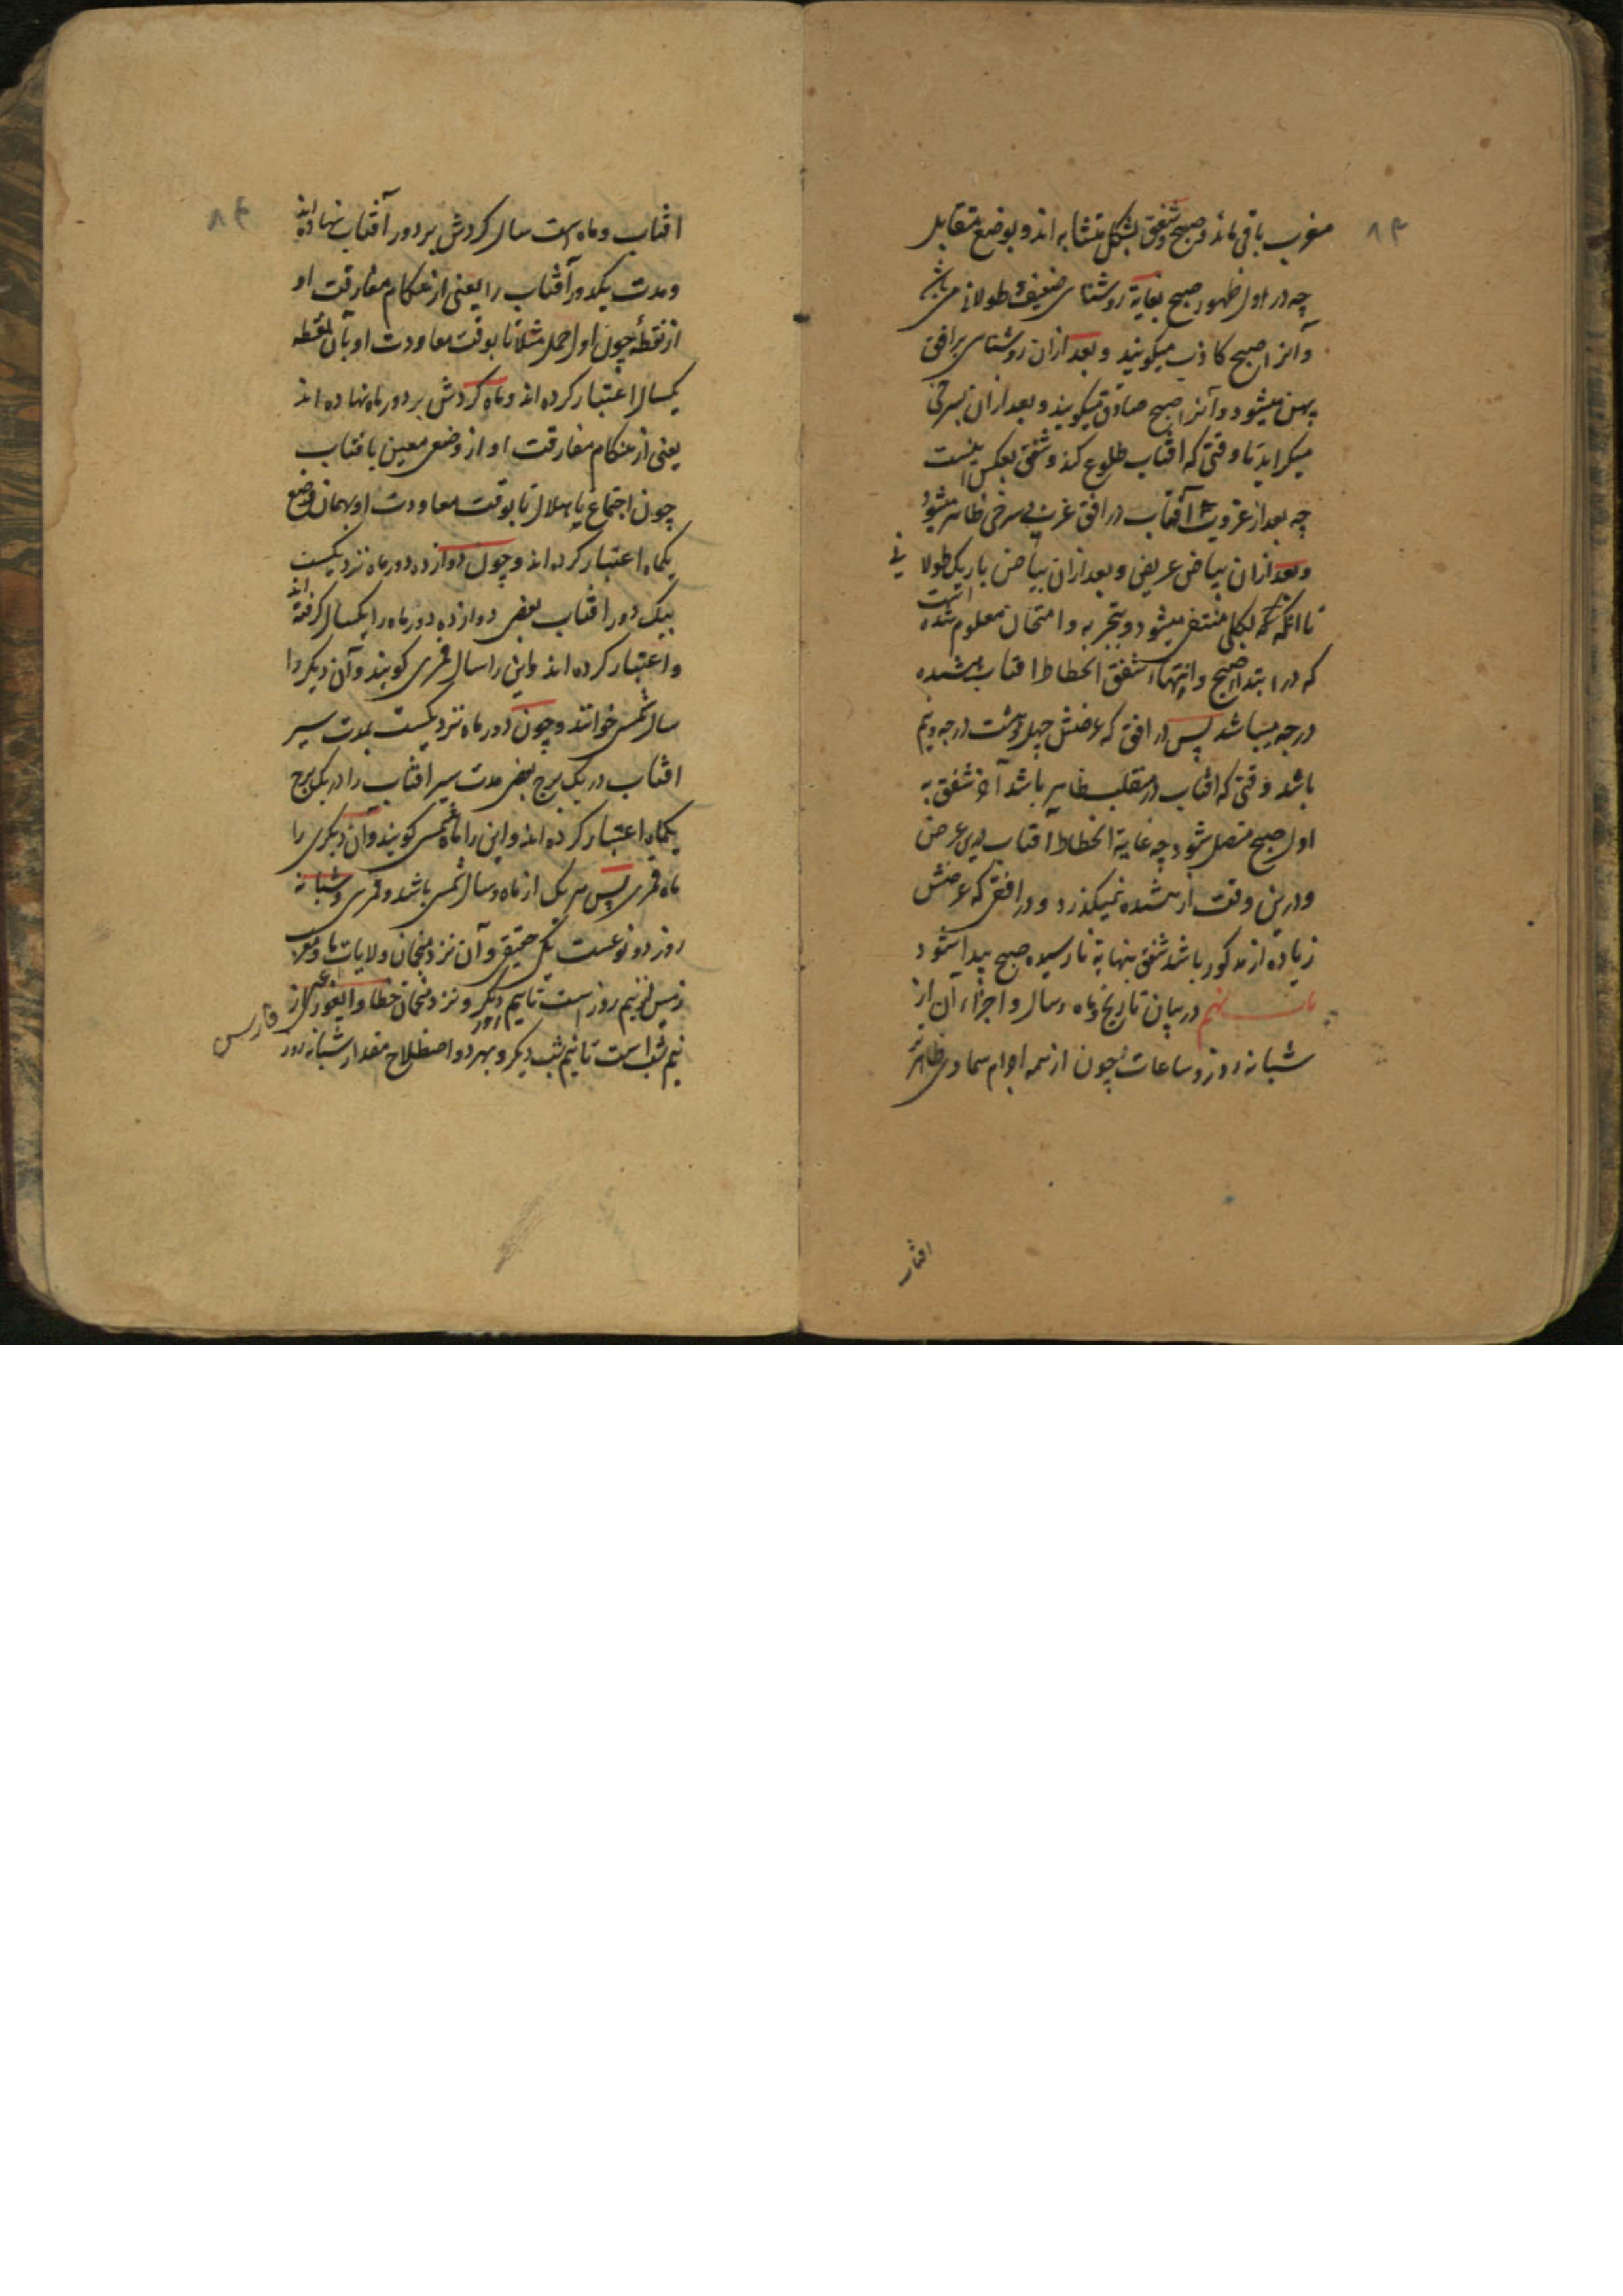 ۸۳
مغرب باقی ماند و صبح و شفق بشکل متشابه اند و بوضع متقابل
چه در اول ظهور صبح بغایة روشنای ضعیف و طولانی می باشد
و آنرا صبح کاذب میگویند و بعد ازان روشنای بر افق
پهن میشود و آنرا صبح صادق میگویند و بعد ازان بسرخی
میگراید تا وقتی که افتاب طلوع کند و شفق بعکس اینست
چه بعد از غروب آفتاب در افق غربی سرخی ظاهر میشود
و بعد ازان بیاض عریض و بعد ازان بیاض باریک طولانی
تا انگه که بکلی منتفی میشود و بتجربه و امتحان معلوم شده است
که در ابتداء صبح و انتهاء شفق انحطاط افتاب هشده
درجه میباشد پس در افقی که عرضش چهل و هشت درجه و نیم
باشد وقتی که افتاب در منقلب ظاهر باشد آخر شفق به
اول صبح متصل شود چه غایة انحطاط آفتاب درین عرض
و درین وقت از هشده نمیکذرد و در افقی که عرضش
زیاده از مذکور باشد شفق بنهایة نارسیده صبح پیدا شود
باب نهم در بیان تاریخ و ماه و سال و اجزاء آن از
شبانه روز و ساعات چون از همه اجرام سماوی ظاهرتر
افتاب
۸۴
افتاب و ماه است سال کردش بر دور آفتاب نهاده اند
و مدت یکدور آفتاب را یعنی از هنکام مفارقت او
از نقطهٔ چون اول حمل مثلا تا بوقت معاودت او بآن نقطه
یکسال اعتبار کرده اند و ماه کردش بر دور ماه نهاده اند
یعنی از هنکام مفارقت او از وضعی معین با افتاب
چون اجتماع یا هلال تا بوقت معاودت او بهمان وضع
یکماه اعتبار کرده اند و چون دوازده دور ماه نزدیکست
بیک دور افتاب بعضی دوازده دور ماه را یکسال گرفته اند
و اعتبار کرده اند و این را سال قمری گویند و آن دیگر را
سال شمسی خوانند و چون دور ماه نزدیکست بمدت سیر
افتاب در یک برج بعضی مدت سیر افتاب را در یک برج
یکماه اعتبار کرده اند و این را ماه شمسی گویند و آن دیگری را
ماه قمری پس هر یک از ماه و سال شمسی باشد و قمری و شبانه
روز دو نوعست یکی حقیقی و آن نزد منجمان ولایات ما و مغرب
زمین از نیم روز است تا نیم روز دیگر و نزد منجمان خطا و ایغور از
فارس
نیم شب است تا نیم شب دیگر و بهر دو اصطلاح مقدار شبانه روز